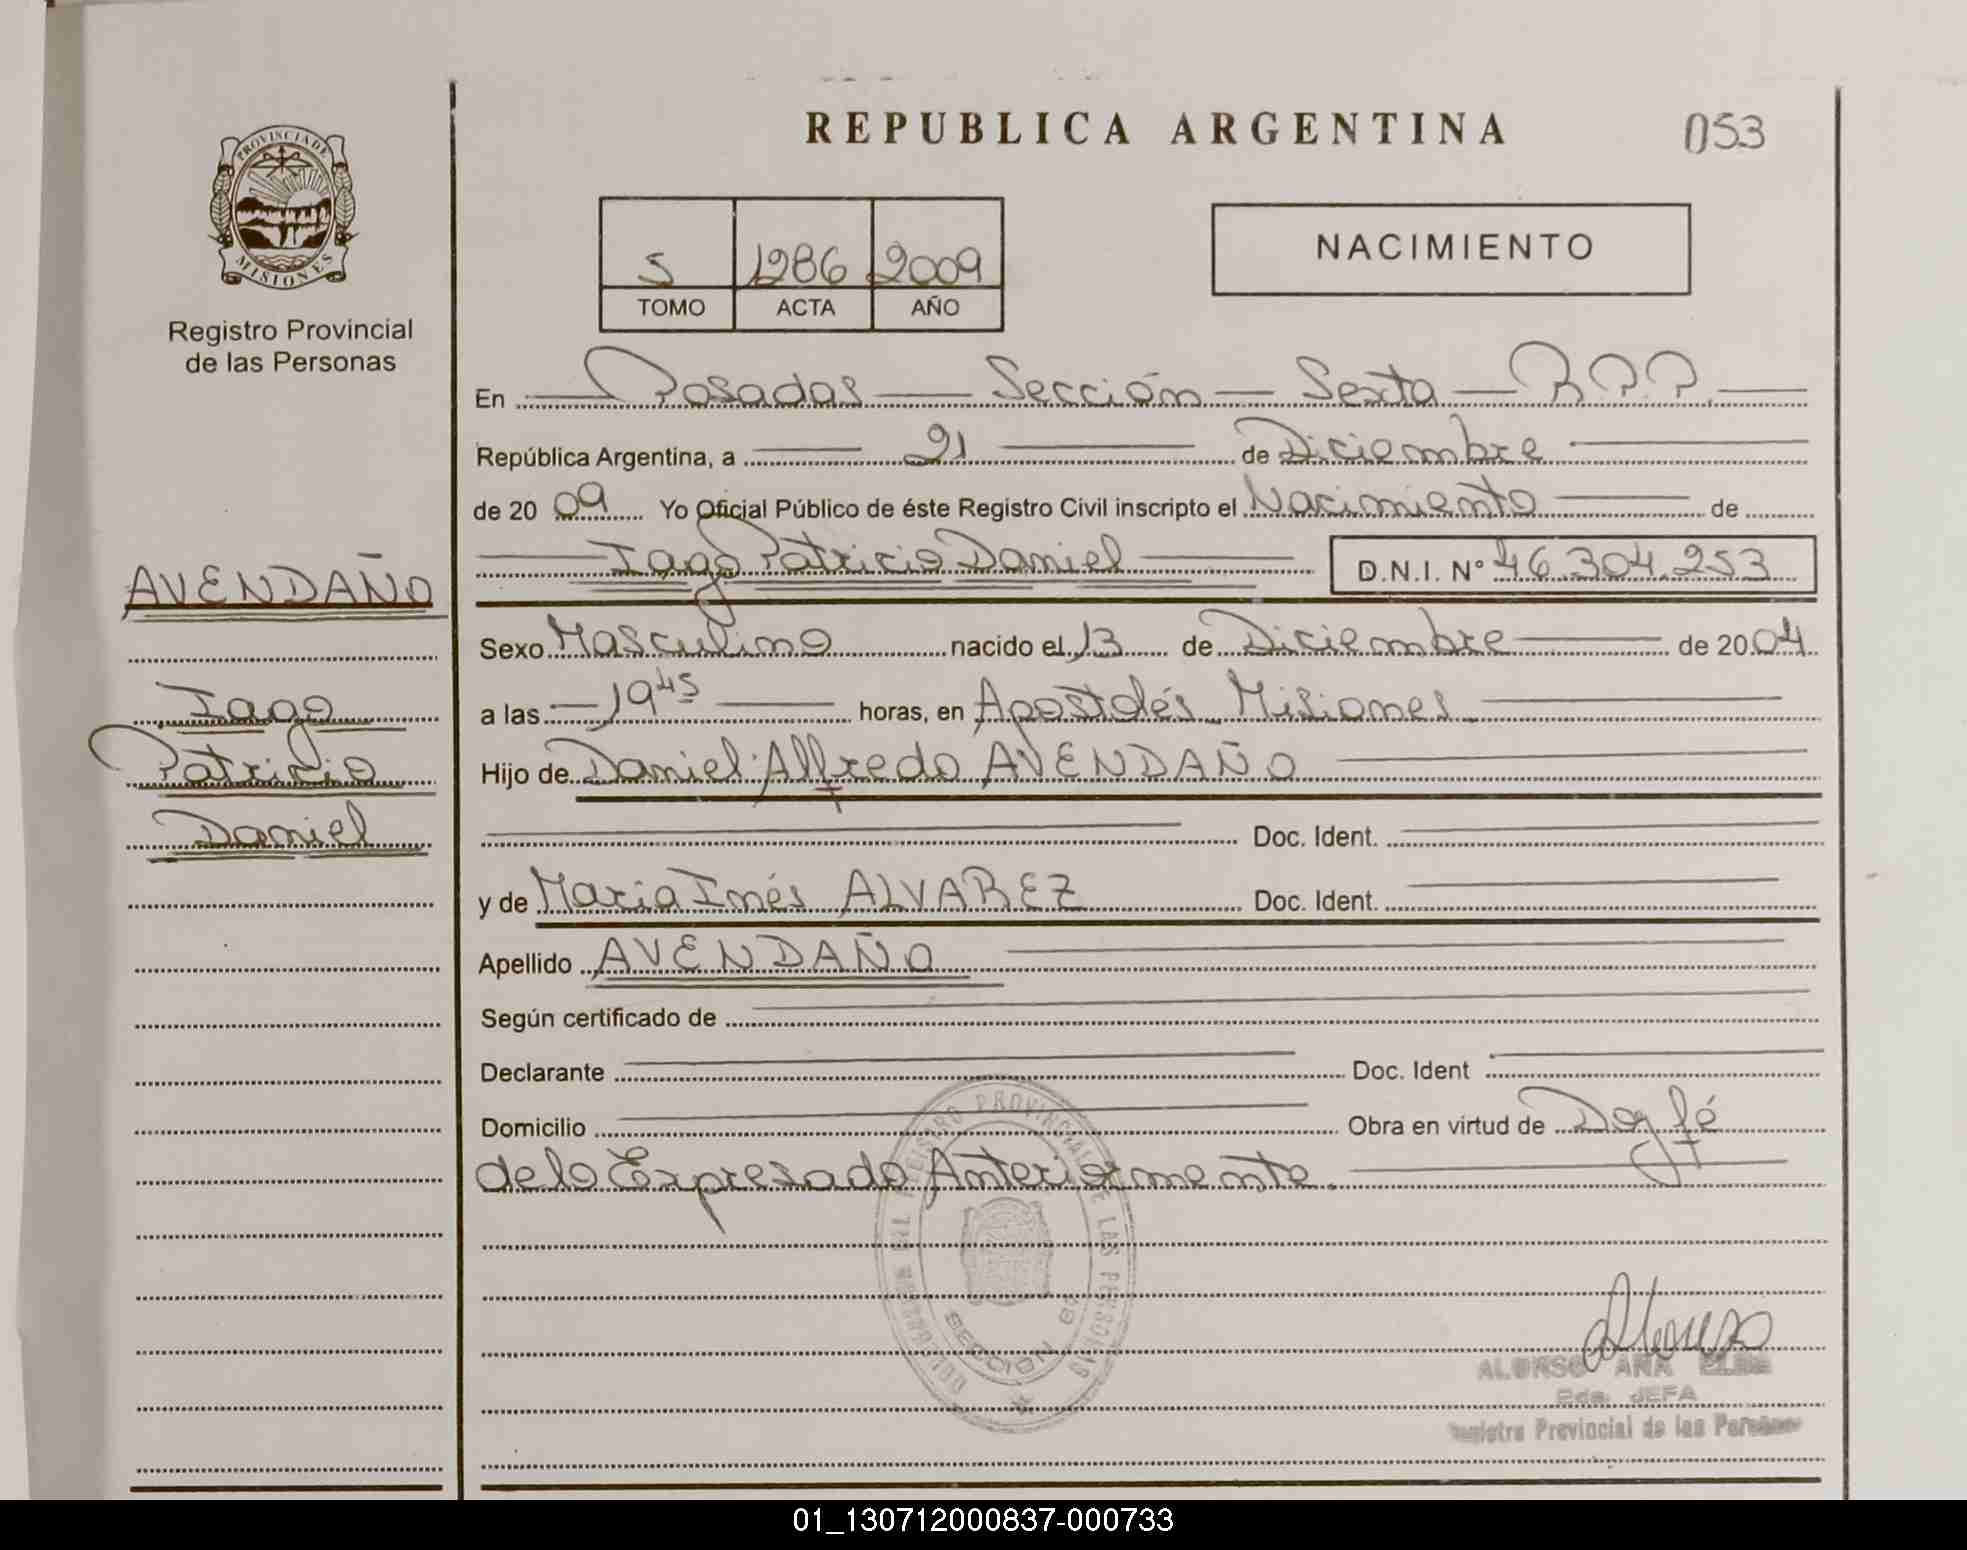 REPUBLICA ARGENTINA
053
PROVINCIA DE
MISIONES
Registro Provincial
de las Personas
5 1286 2009
TOMO ACTA AÑO
NACIMIENTO
En Posadas Sección Sexta R.P.P.
República Argentina, a 21 de Diciembre
de 20 09 Yo Oficial Público de éste Registro Civil inscripto el Nacimiento de
Iago Patricio Daniel D.N.I. N° 46.304.253
AVENDAÑO
Iago
Patricio
Daniel
Sexo Masculino nacido el 13 de Diciembre de 20 04
a las 19 45 horas, en Apostolés - Misiones
Hijo de Daniel Alfredo AVENDAÑO
Doc. Ident.
y de Maria Inés ALVAREZ Doc. Ident.
Apellido AVENDAÑO
Según certificado de
Declarante Doc. Ident
Domicilio Obra en virtud de Doy fé
de lo Expresado Anteriormente.
REGISTRO PROVINCIAL DE LAS PERSONAS
SECCION
Alonso
ALONSO ANA ELBA
JEFA
Registro Provincial de las Personas
01_130712000837-000733